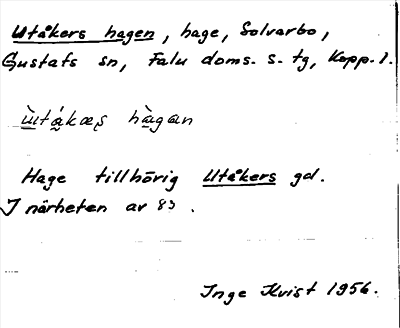 Utåkers hagen, hage, Solvarbo,
Gustafs sn, Falu doms. s. tg, Kopp. l.
ùtákæʂ hàgan
Hage tillhörig Utåkers gd.
I närheten av 83.
Inge Kvist 1956.